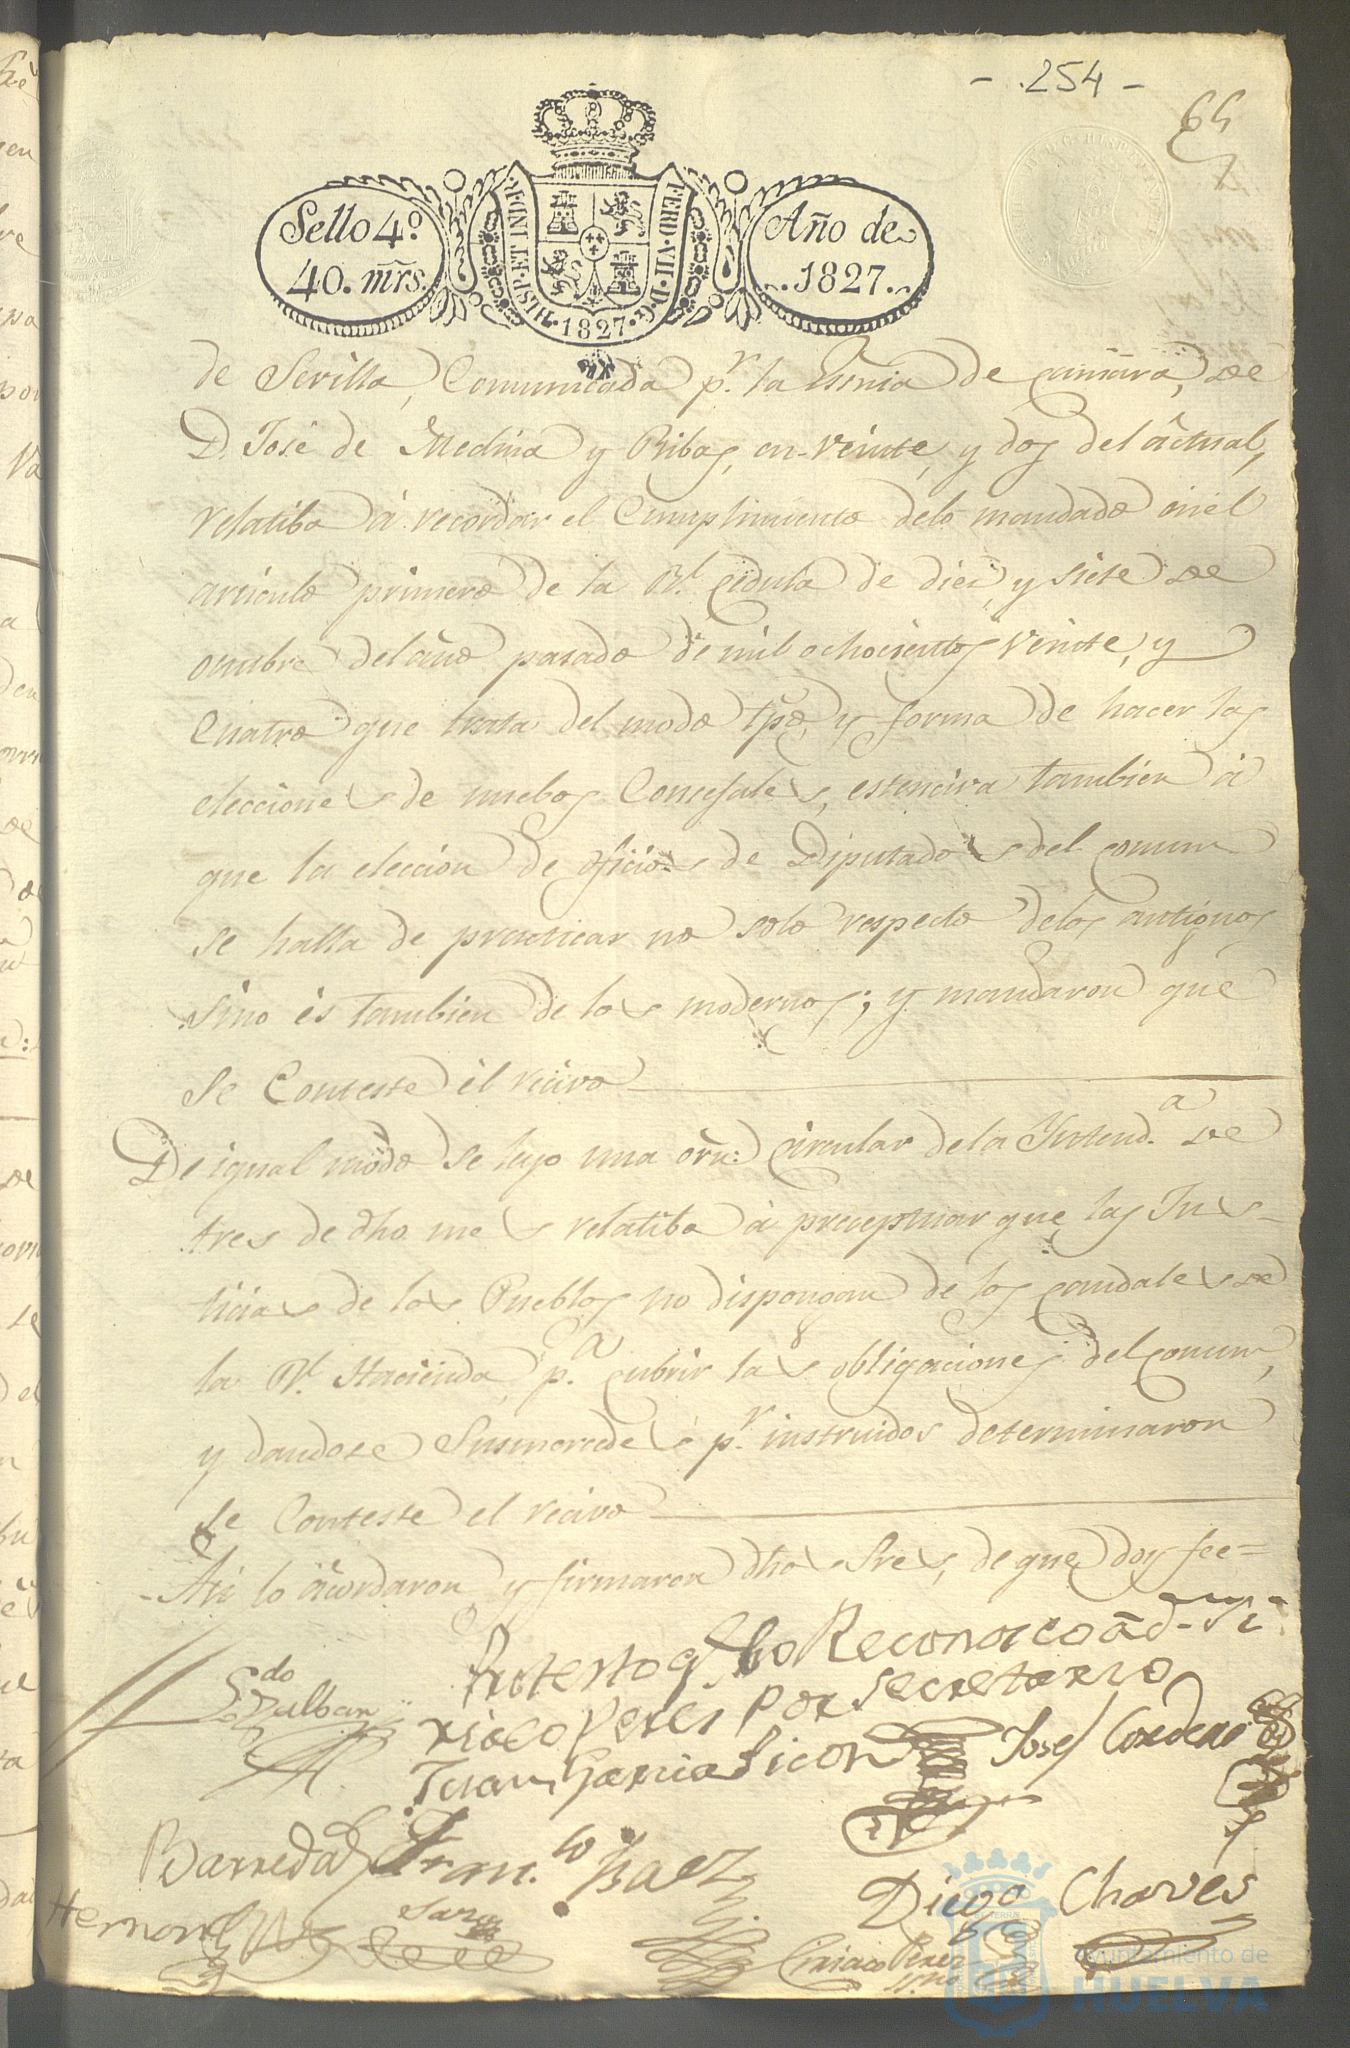 - .254 -
65
Sello 4º.
40. mrs.
HISP. ET IND. R.
FERD. VII. D. G.
. 1827 .
Año de
1827.
de Sevilla, Comunicada pr. la Esnia de camara, de
D. José de Medina y Ribas, en veinte, y dos del actual,
relatiba á recordar el Cumplimiento delo mandado en el
articulo primero de la Rl. Cedula de diez, y siete de
octubre delaño pasado de mil ochocientos veinte, y
Cuatro que trata del modo tpo, y forma de hacer las
elecciones de nuebos Consejales, estensiva tambien á
que la eleccion de oficios de Diputados del comun
se halla de practicar no solo respecto delos antiguos
sino és tambien de los modernos; y mandaron que
se Conteste él recivo
De igual modo se leyo una orn: circular dela Yntend.a de
tres de dho mes relatiba á preceptuar que las Jus-
ticias de los Pueblos no dispongan de los caudales de
la Rl. Hacienda, p.a cubrir las obligaciones del comun,
y dandose Susmercedes pr. instruidos determinaron
se Conteste el recivo
Asi lo acordaron, y firmaron dhos Sres, de que doy fee=
Protesto q. no Reconosco á d. Ci
riaco Peres por secretario
Juan Garcia Picon
Josef Cordero
Barreda
Fran.co Baez
Diego Chaves
Hernand
Ciriaco Perez
ayuntamiento de
HUELVA